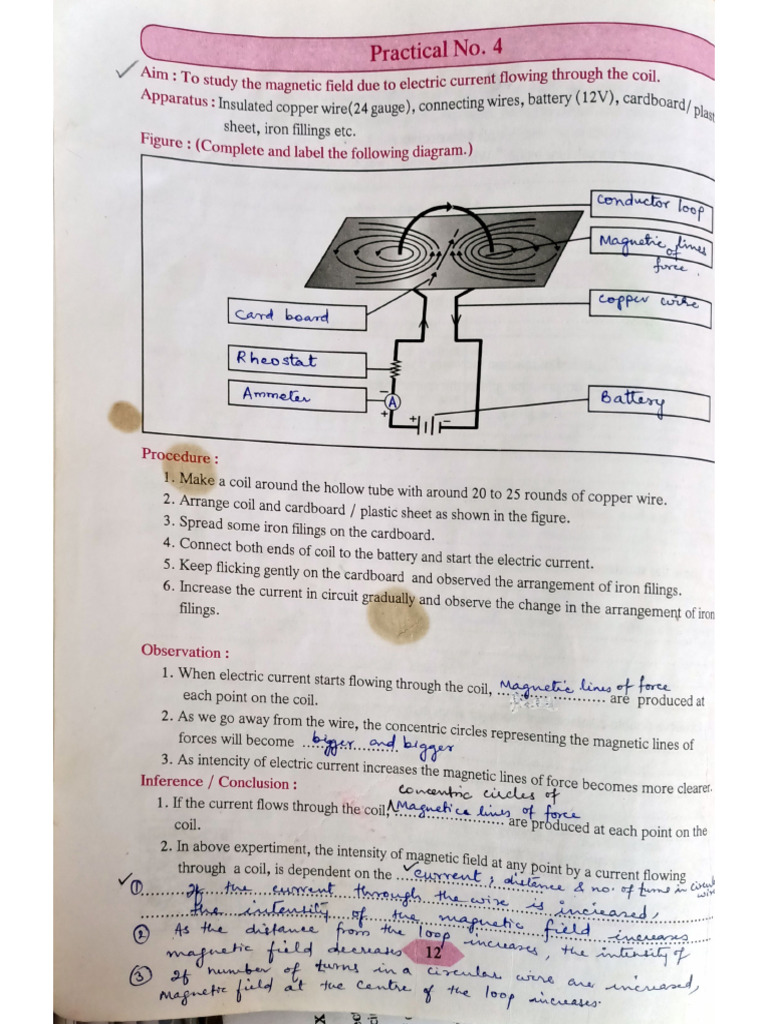 Practical No. 4
Aim : To study the magnetic field due to electric current flowing through the coil.
Apparatus : Insulated copper wire(24 gauge), connecting wires, battery (12V), cardboard/ plast
sheet, iron fillings etc.
Figure : (Complete and label the following diagram.)
conductor loop
Magnetic lines
of
force.
copper wire
Card board
Rheostat
Ammeter
A
Battery
Procedure :
1. Make a coil around the hollow tube with around 20 to 25 rounds of copper wire.
2. Arrange coil and cardboard / plastic sheet as shown in the figure.
3. Spread some iron filings on the cardboard.
4. Connect both ends of coil to the battery and start the electric current.
5. Keep flicking gently on the cardboard and observed the arrangement of iron filings.
6. Increase the current in circuit gradually and observe the change in the arrangement of iron
filings.
Observation :
1. When electric current starts flowing through the coil, Magnetic lines of force are produced at
each point on the coil.
2. As we go away from the wire, the concentric circles representing the magnetic lines of
forces will become bigger and bigger
3. As intencity of electric current increases the magnetic lines of force becomes more clearer.
Inference / Conclusion :
concentric circles of
1. If the current flows through the coil, Magnetics lines of force are produced at each point on the
coil.
2. In above expertiment, the intensity of magnetic field at any point by a current flowing
through a coil, is dependent on the current, distance & no. of turns in circular
wire
① If the current through the wire is increased,
the intensity of the magnetic field increases
② As the distance from the loop increases, the intensity of
magnetic field decreases
12
③ If number of turns in a circular wire are increased,
Magnetic field at the centre of the loop increases.